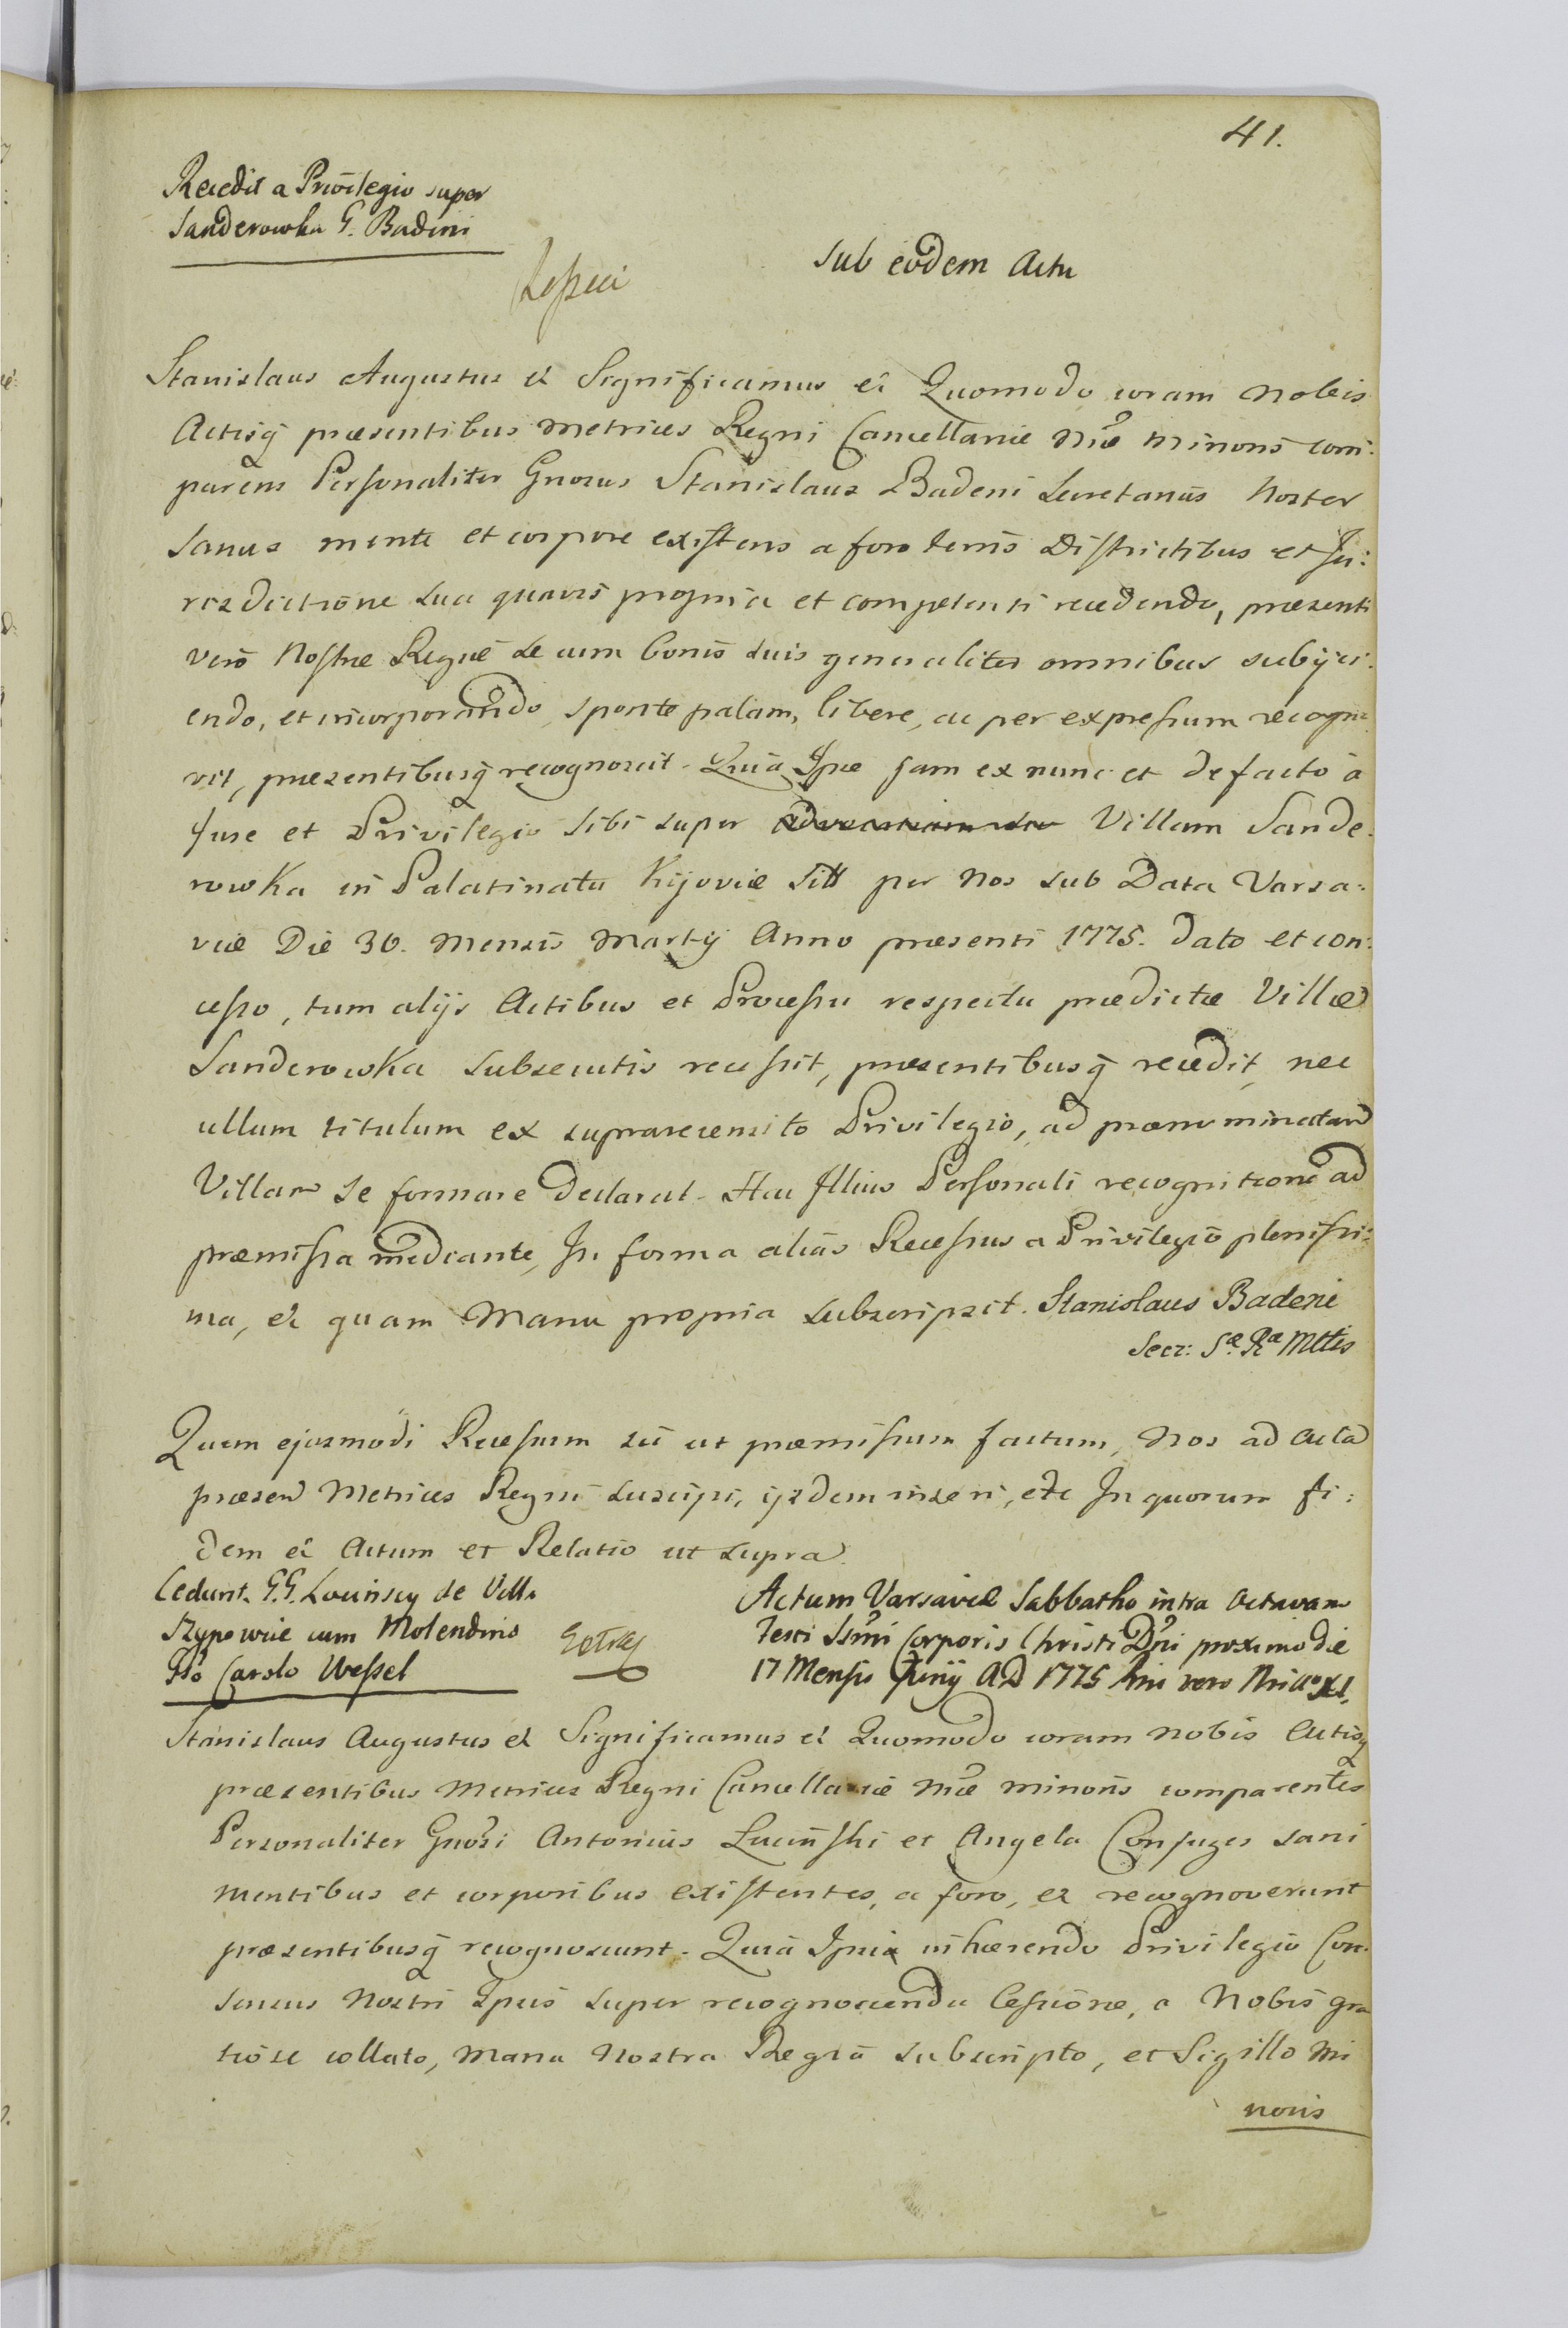 41.
Recedit a Privilegio super
Sanderowka G. Badeni
Sub eodem Actu
Stanislaus Augustus et Significamus et Quomodo coram Nobis
Actisq præsentibus Metrices Regni Cancellariæ Nræ Minoris com:
parens Personaliter Gnosus Stanislaus Badeni Secretarius Noster
Sanus mente et corpore existens a foro terris Districtibus et Ju:
risdictione sua quavis propria et competenti recedendo, præsenti
vero Nostræ Regiæ se cum bonis suis generaliter omnibus subijci:
endo, et incorporando sponte palam, libere, ac per expressum recogno
vit, præsentibusq recognoscit. Quia Ipse jam ex nunc et de facto a
Jure et Privilegio sibi super Villam Sande:
rowka in Palatinatu Kijoviæ Sitt per Nos sub Data Varsa:
viæ Die 30. Mensis Martij Anno præsenti 1775. dato et con:
cesso, tum alijs Actibus et Processu respectu prædictæ Villæ
Sanderowka subsecutis recessit, præsentibusq recedit, nec
ullum titulum ex suprarecensito Privilegio, ad prænominatam
Villam se formare declarat. Hac Illius Personali recognitione ad
præmissa mediante, In forma alias Recessus a Privilegio plenissi:
ma, et quam Manu propria subscripsit. Stanislaus Badeni
Secr: Sæ Ræ Mttis
Quem ejusmodi Recessum sic ut præmissum factum, Nos ad Acta
præsen Metrices Regni suscipi, ijsdem inseri, etc In quorum fi:
dem et Actum et Relatio ut supra.
Cedunt G.G. Lucinscy de Villa
cum Molendino
Carolo Wessel
Actum Varsaviæ Sabbatho intra Octavam
Festi Ssmi Corporis Christi Dni proximo die
17 Mensis Junij AD 1775
Stanislaus Augustus et Significamus et Quomodo coram Nobis Actisq
præsentibus Metrices Regni Cancellariæ Nræ Minoris comparentes
Personaliter Gnosi Antonius Luciński et Angela Conjuges sani
mentibus et corporibus existentes, a foro, et recognoverunt
præsentibusq recognoscunt. Quia Ipsi inhærendo Privilegio Con:
sensus Nostri Ipsis super recognoscenda Cessione, a Nobis gra
tiose collato, Manu Nostra Regia subscripto, et Sigillo Mi
noris